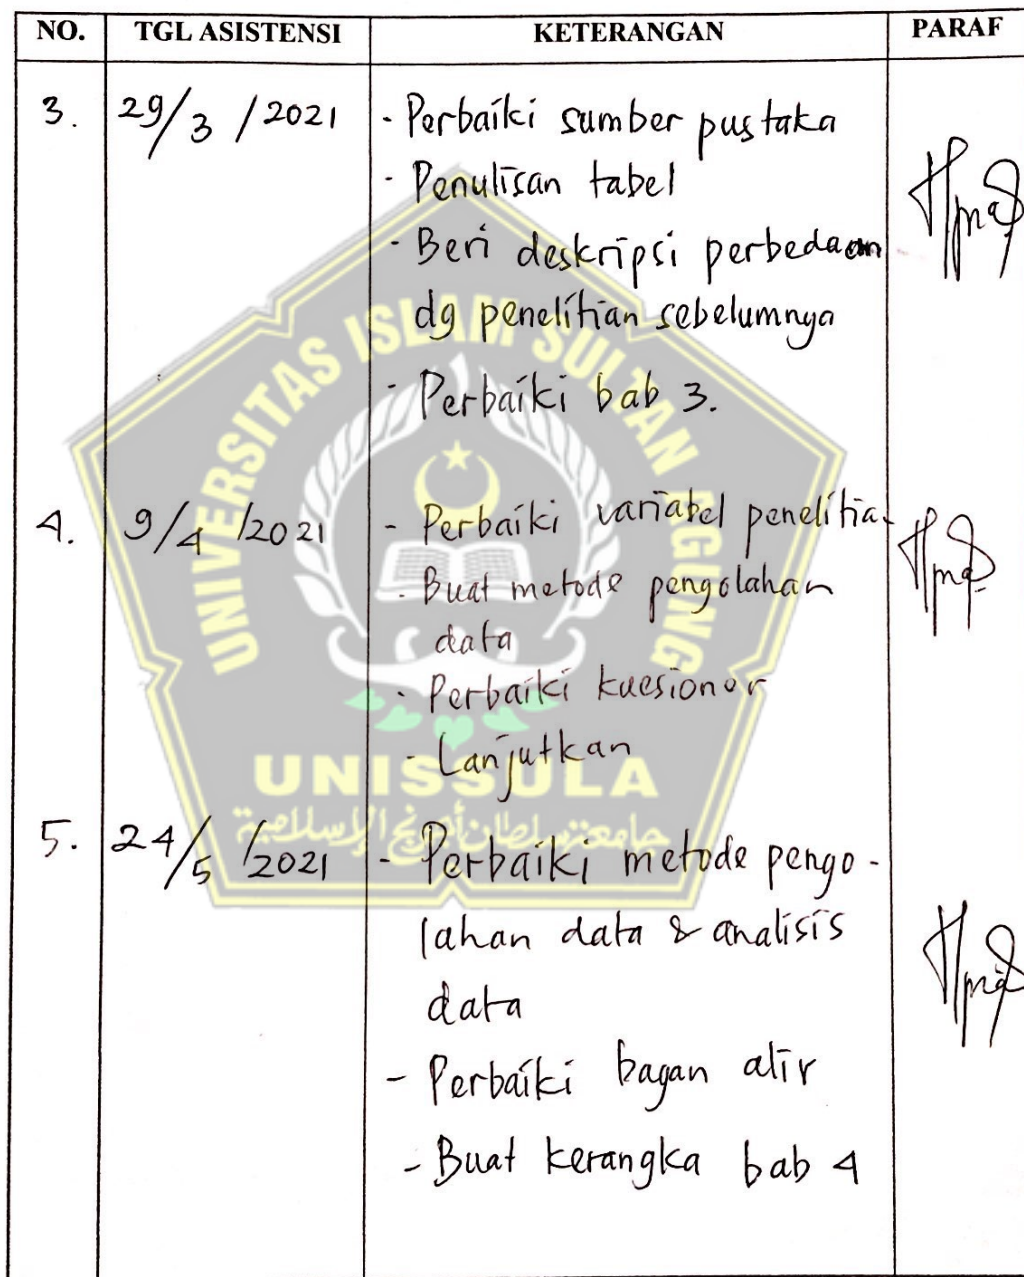 NO. TGL ASISTENSI KETERANGAN PARAF
3. 29/3/2021 - Perbaiki sumber pustaka
- Penulisan tabel
- Beri deskripsi perbedaan
dg penelitian sebelumnya
- Perbaiki bab 3.
4. 9/4/2021 - Perbaiki variabel penelitian
- Buat metode pengolahan
data
- Perbaiki kuesioner
- Lanjutkan
5. 24/5/2021 - Perbaiki metode pengo-
lahan data & analisis
data
- Perbaiki bagan alir
- Buat kerangka bab 4
UNIVERSITAS ISLAM SULTAN AGUNG
UNISSULA
جامعة سلطان أجونج الإسلامية